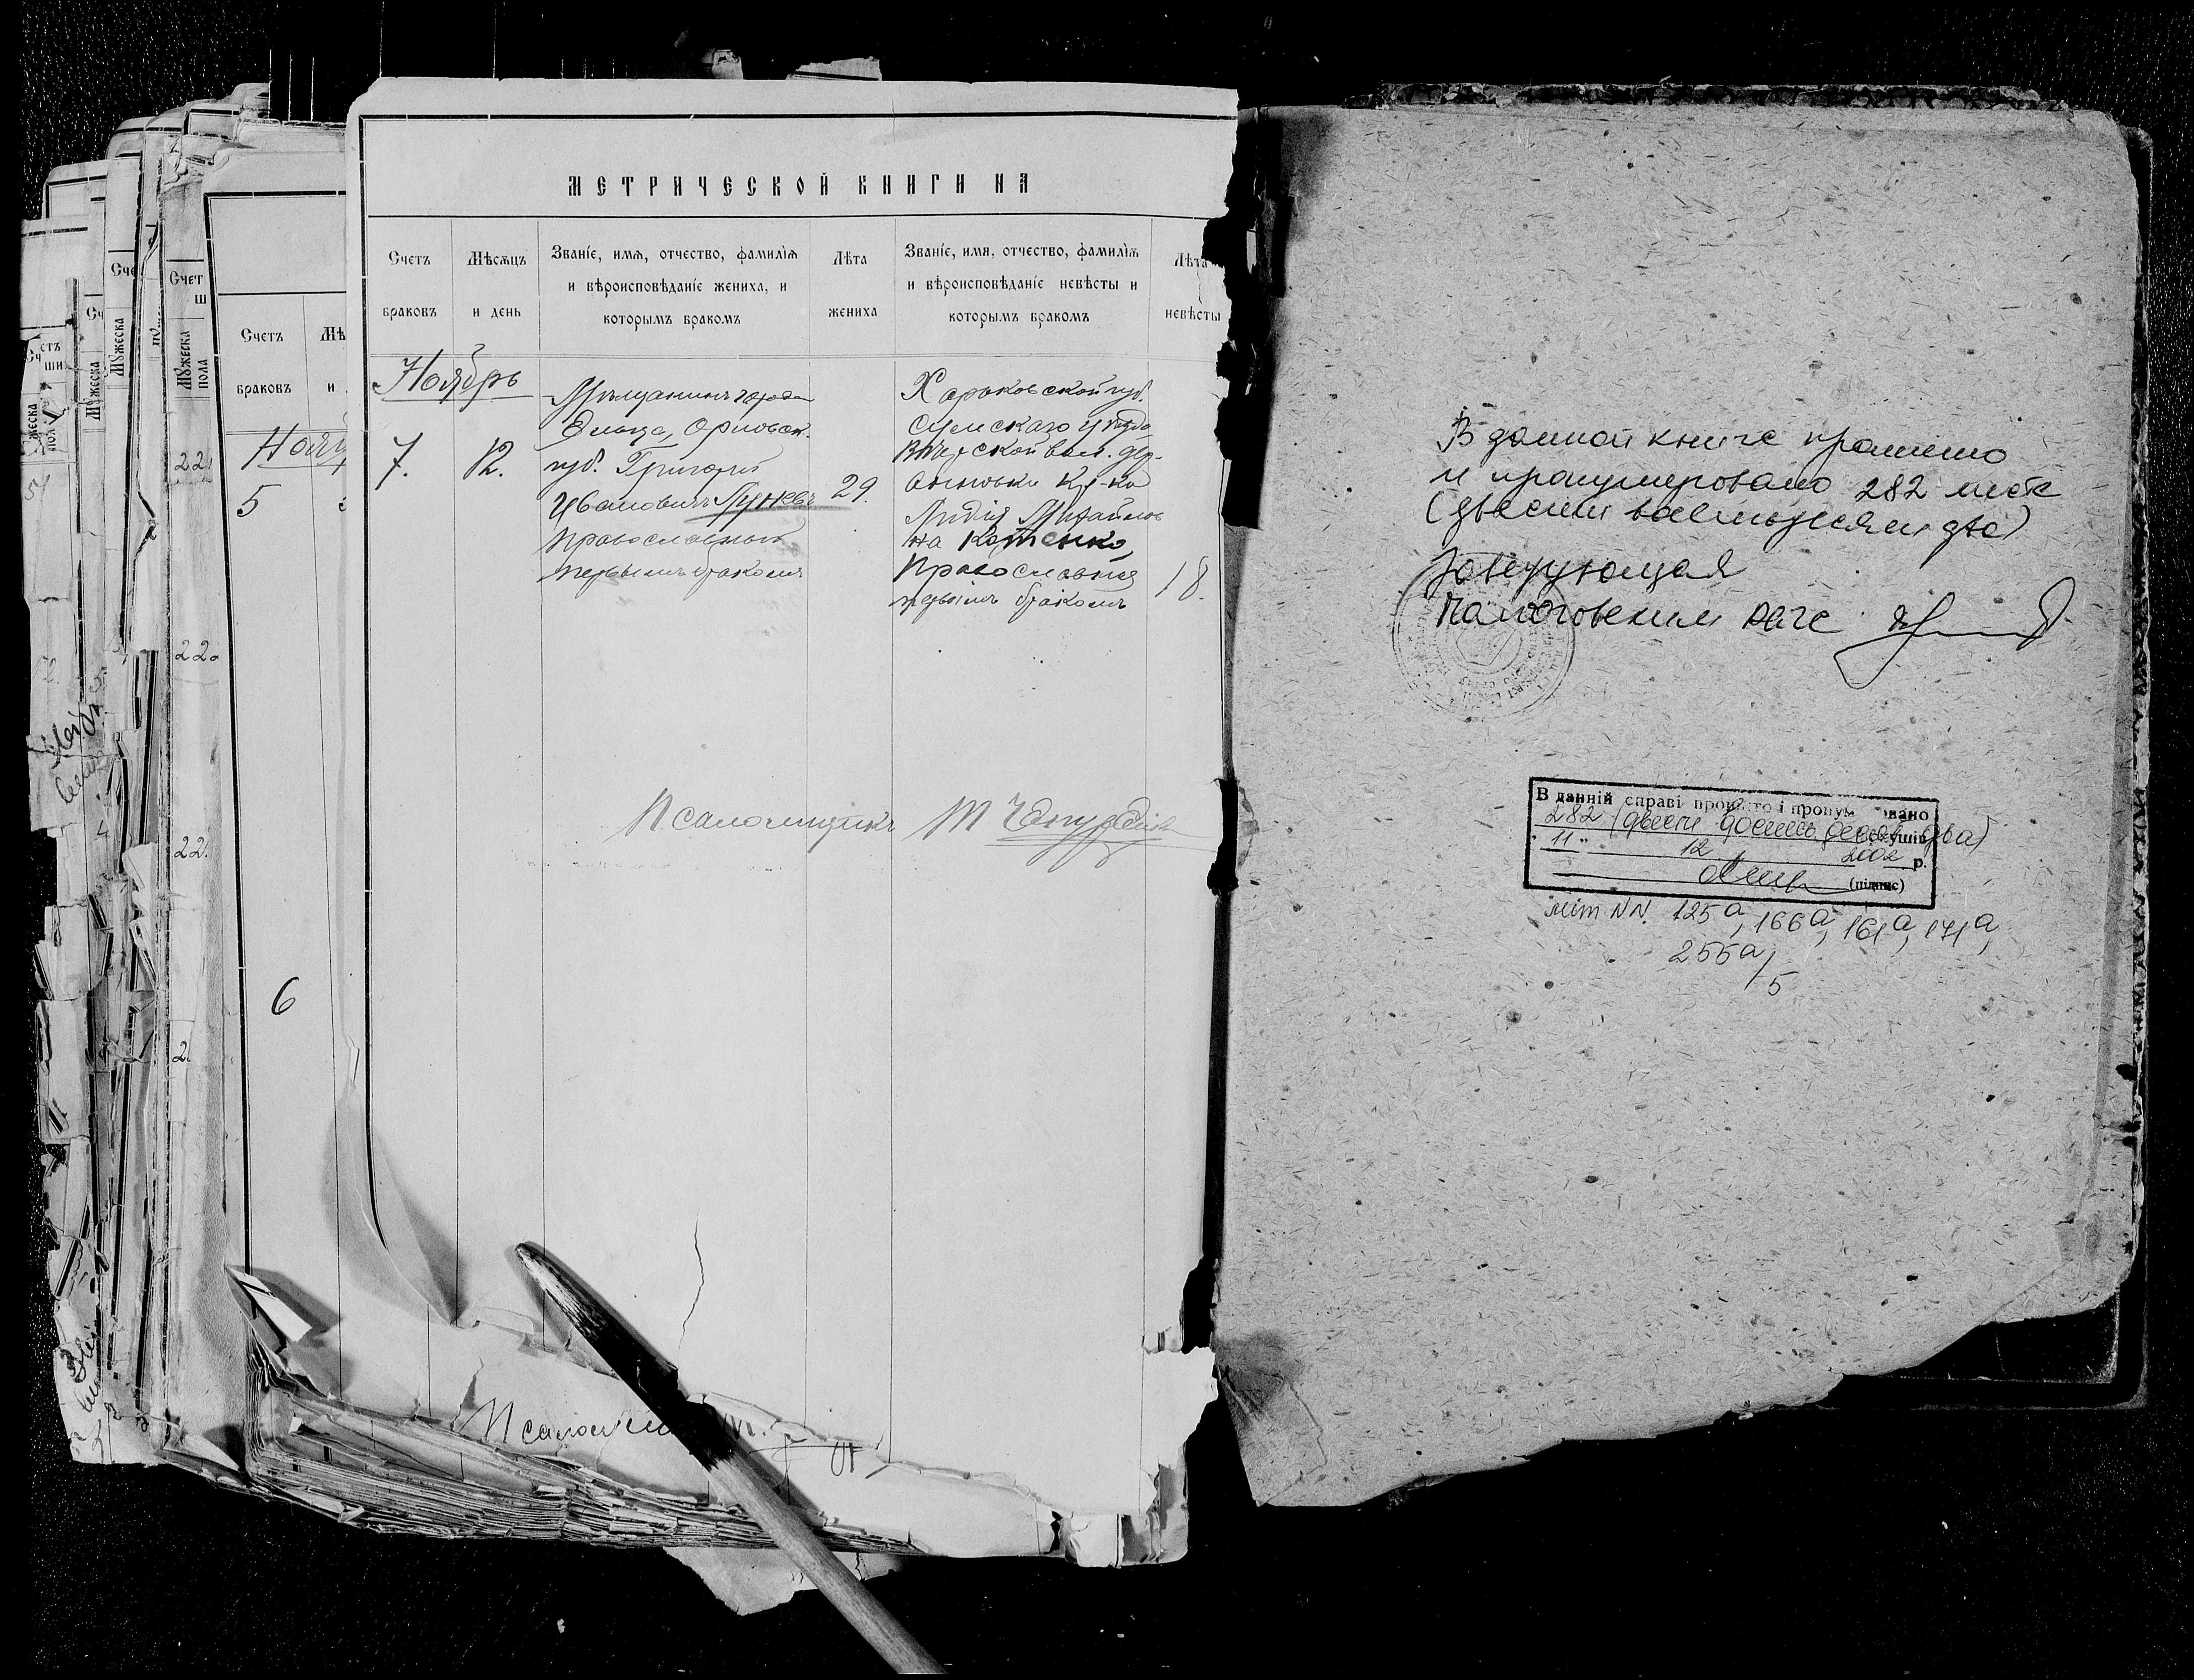 МЕТРИЧЕСКОЙ КНИГИ НА
Счетъ браковъ
Мѣсяцъ и день
Званіе, имя, отчество, фамилія
и вѣроисповѣданіе жениха, и
которымъ бракомъ
Лѣта жениха
Званіе, имя, отчество, фамилія
и вѣроисповѣданіе невѣсты и
которымъ бракомъ
Лѣта невѣсты
Ноябрь
7.
12.
Мѣщанинъ города
Ельца, Орловск.
губ. Григорій
Ивановичъ Луневъ
Православный
первымъ бракомъ
29.
Харьковской губ.
Сумскаго уѣзда
вол. дер.
Кр-ка
Лидія Михайлов
на Котенко,
Православная
первымъ бракомъ
18.
Псаломщикъ
Счетъ
браковъ
Мѣ
и
5
6
Счет
Мꙋжеска
пола
Псаломщи
В данной книге прошито
и пронумеровано 282 листа
(двести восемьдесят два)
Заведующая
ЗАГС
В данній справі прошито і пронумеровано
282 (двести восемьдесят два) аркушів
"11" 12 2002 р.
(підпис)
лит NN 125а, 166а, 161а, 171а,
255а/5